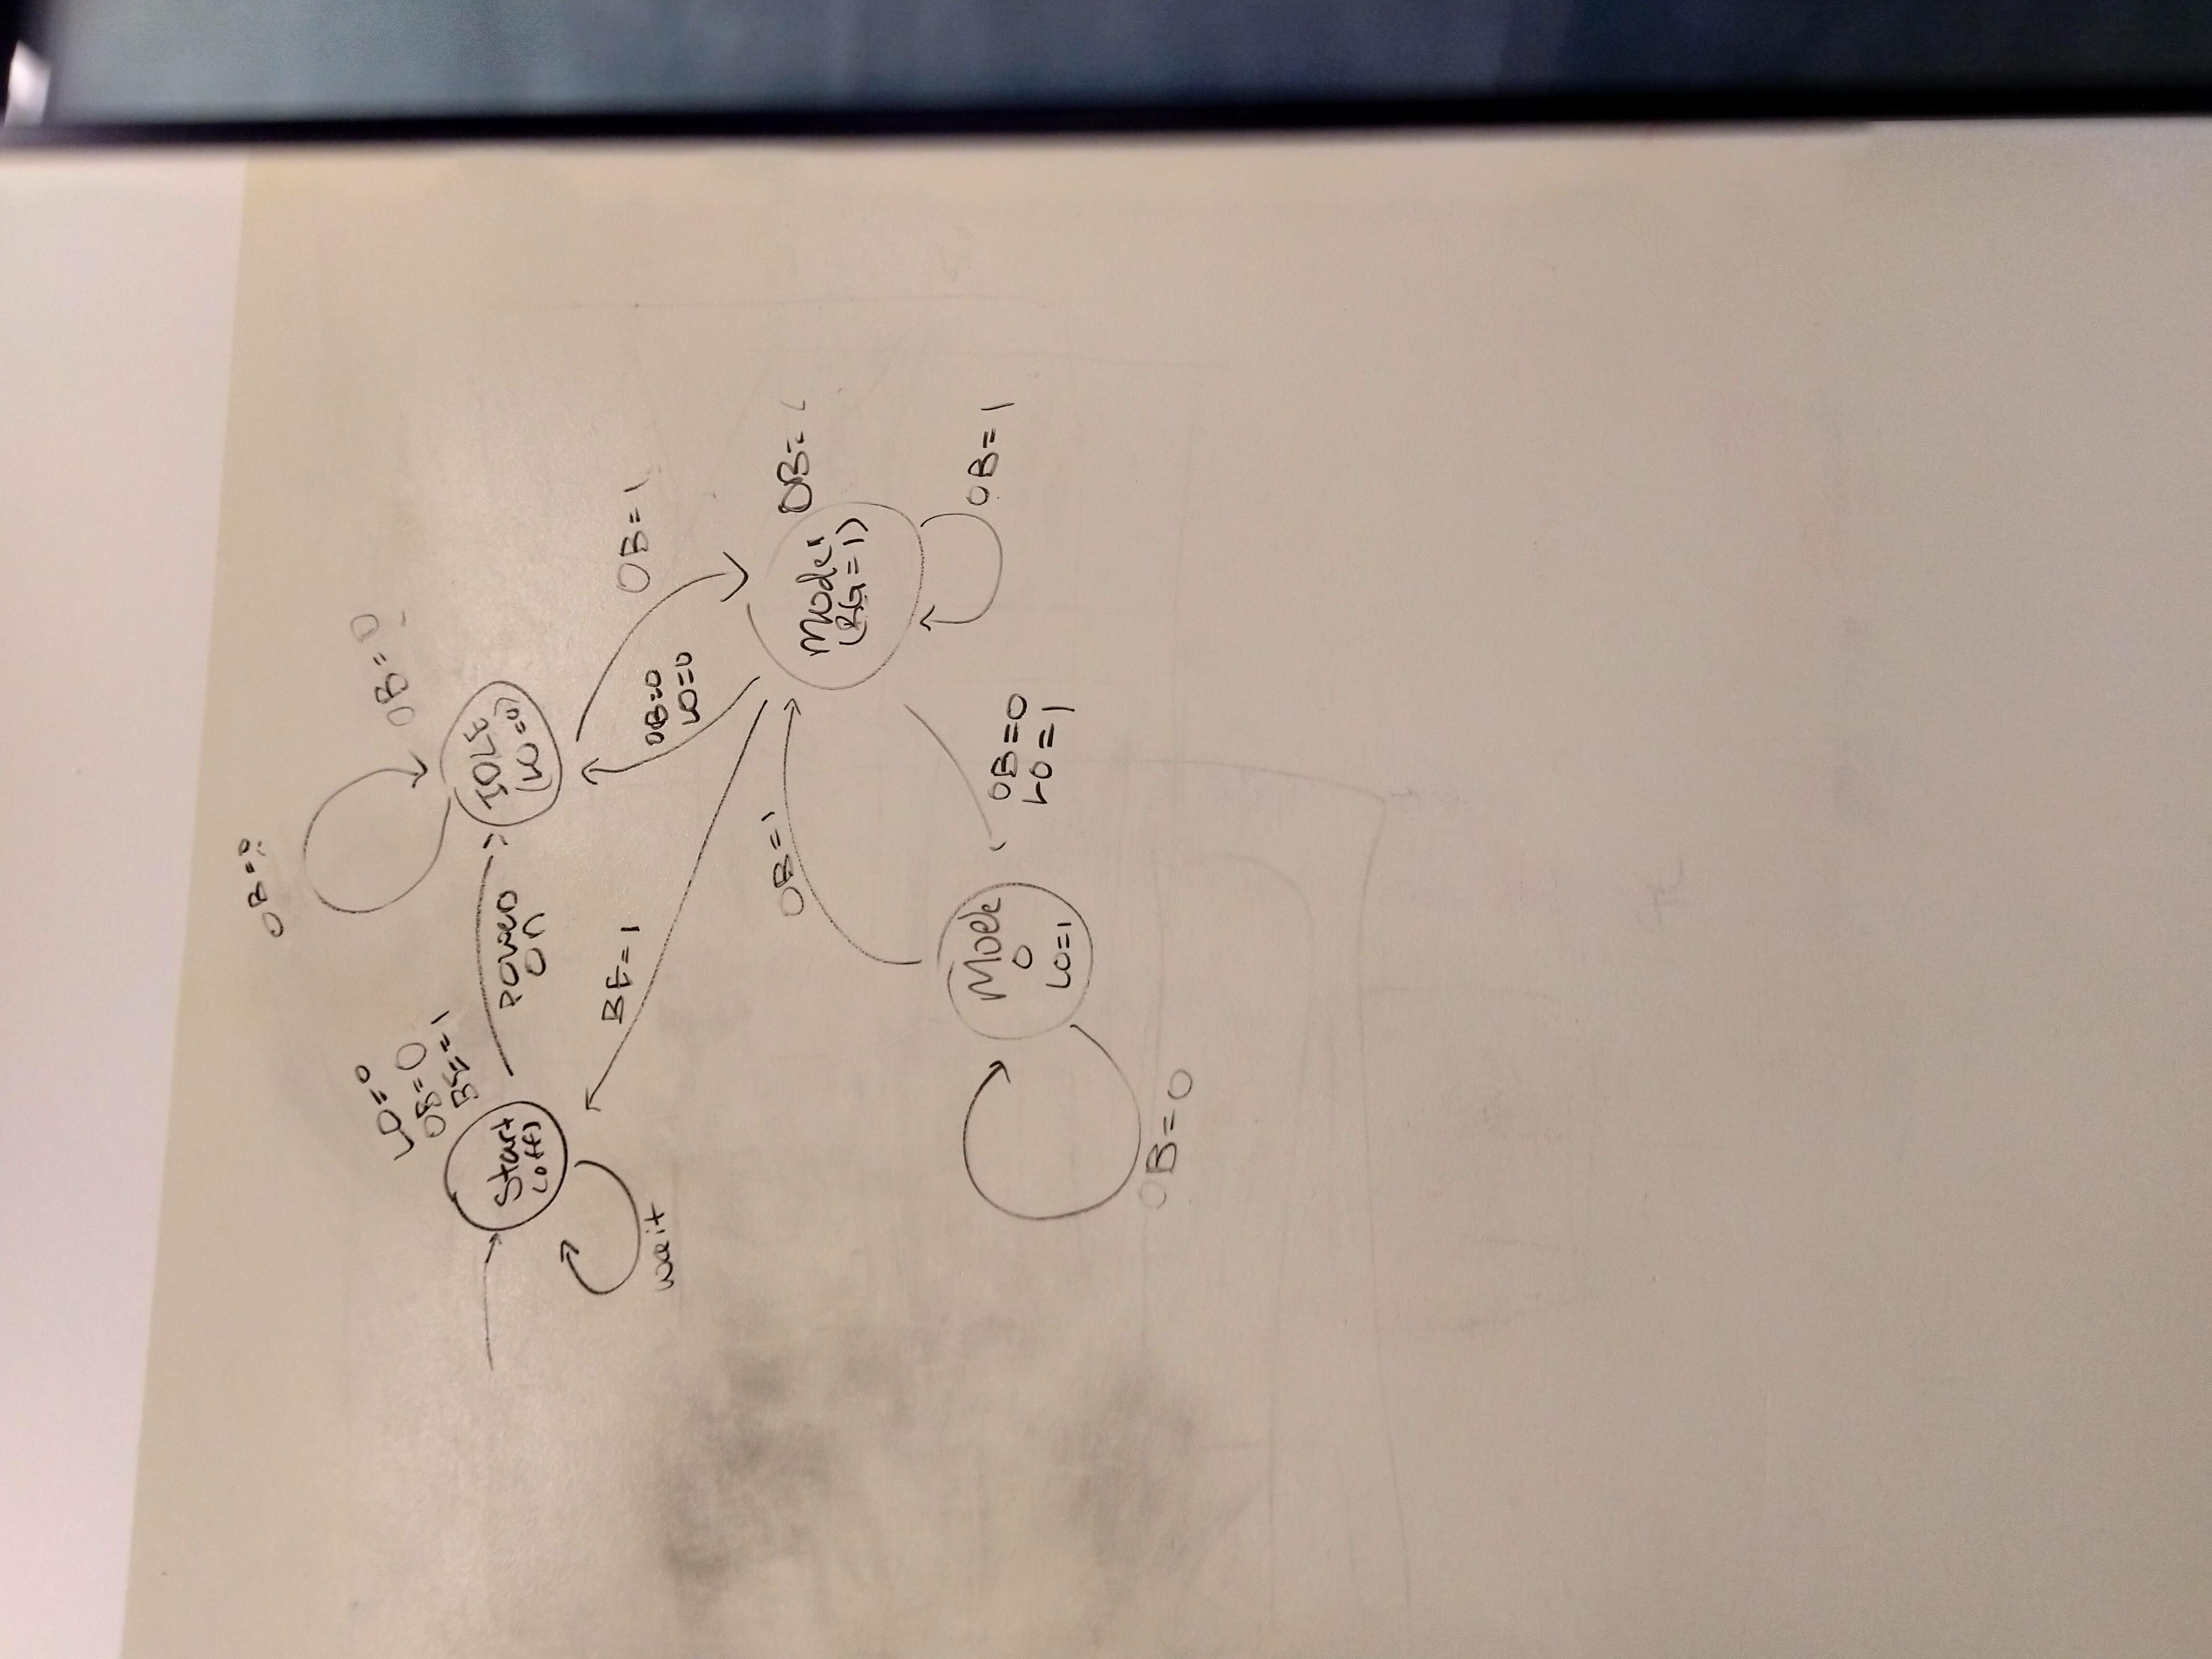 OB=0
LO=0
OB=0
BE=1
OB=0
Start
(off)
POWER
ON
IDLE
(LO=0)
wait
BE=1
OB=0
LO=0
OB=1
OB=1
Mode 1
(BG=1)
OB=
Mode
0
LO=1
OB=0
LO=1
OB=1
OB=0